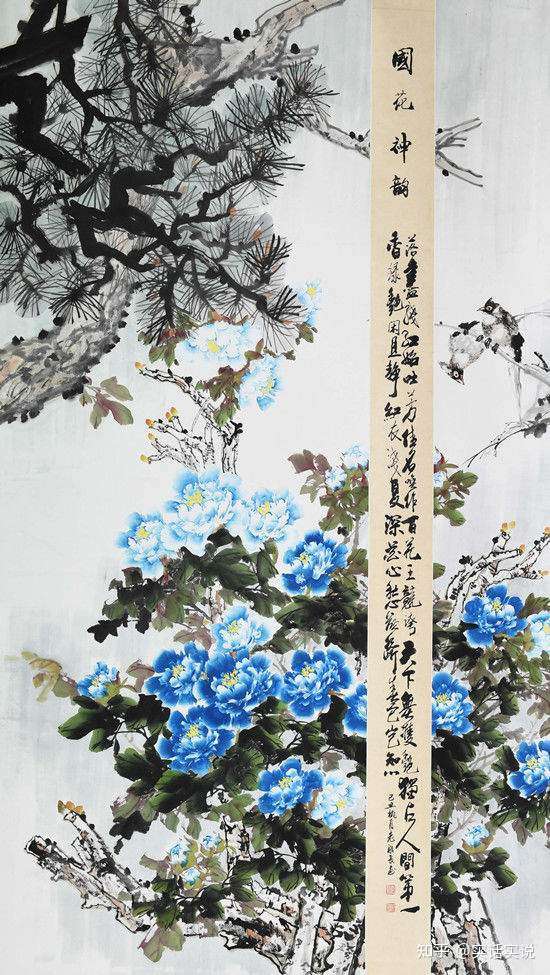 國花神韻
落盡殘紅始吐芳佳名喚作百花王競誇天下無雙艷獨占人間第一
香綠艷閑且靜紅衣淺復深花心愁欲斷春色豈知心
己丑桃月
知乎 @实话实说